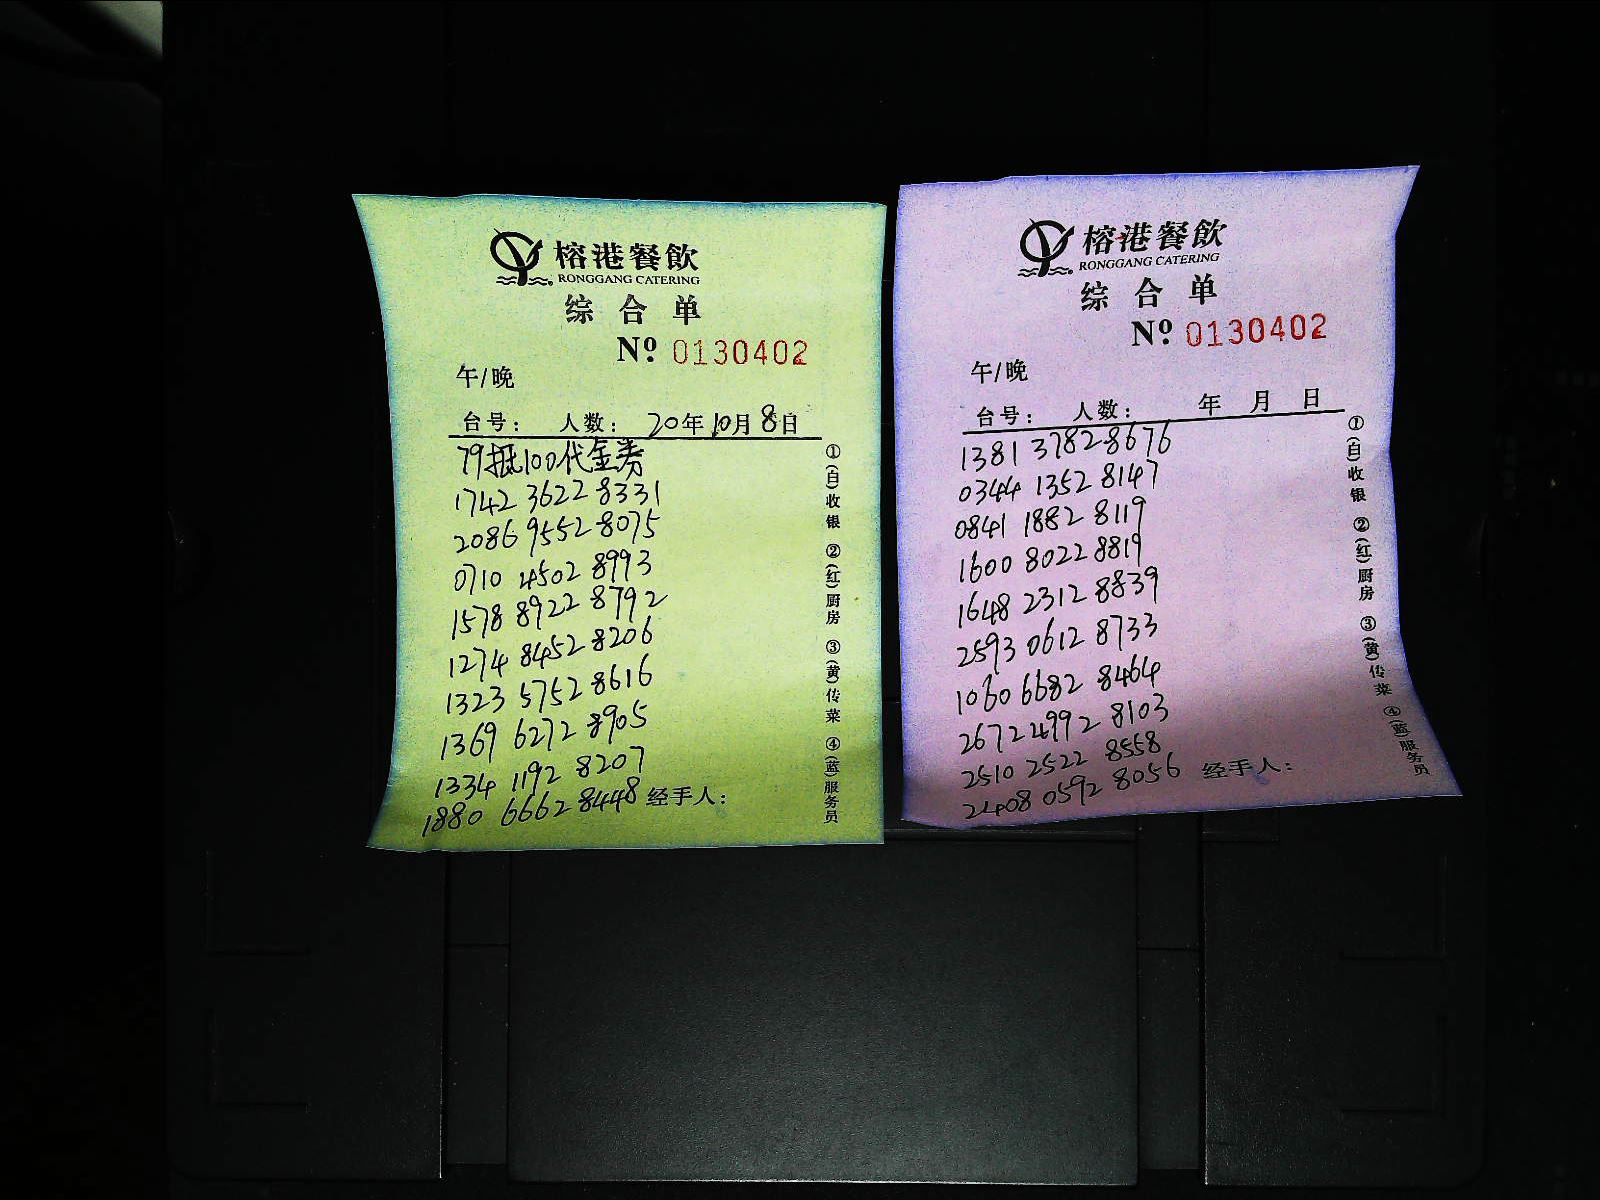 榕港餐飲
RONGGANG CATERING
综合单
Nº 0130402
午/晚
台号： 人数： 20年10月8日
79抵100代金券
1742 3622 8331
2086 9552 8075
0710 4502 8993
1578 8922 8792
1274 8452 8206
1323 5752 8616
1369 6272 8905
1334 1192 8207
1880 6662 8448 经手人：
①(白)收银 ②(红)厨房 ③(黄)传菜 ④(蓝)服务员
榕港餐飲
RONGGANG CATERING
综合单
Nº 0130402
午/晚
台号： 人数： 年 月 日
1381 3782 8676
0344 1352 8147
0841 1882 8119
1600 8022 8819
1648 2312 8839
2593 0612 8733
1060 6682 8464
2672 4992 8103
2510 2522 8558
2408 0592 8056 经手人：
①(白)收银 ②(红)厨房 ③(黄)传菜 ④(蓝)服务员